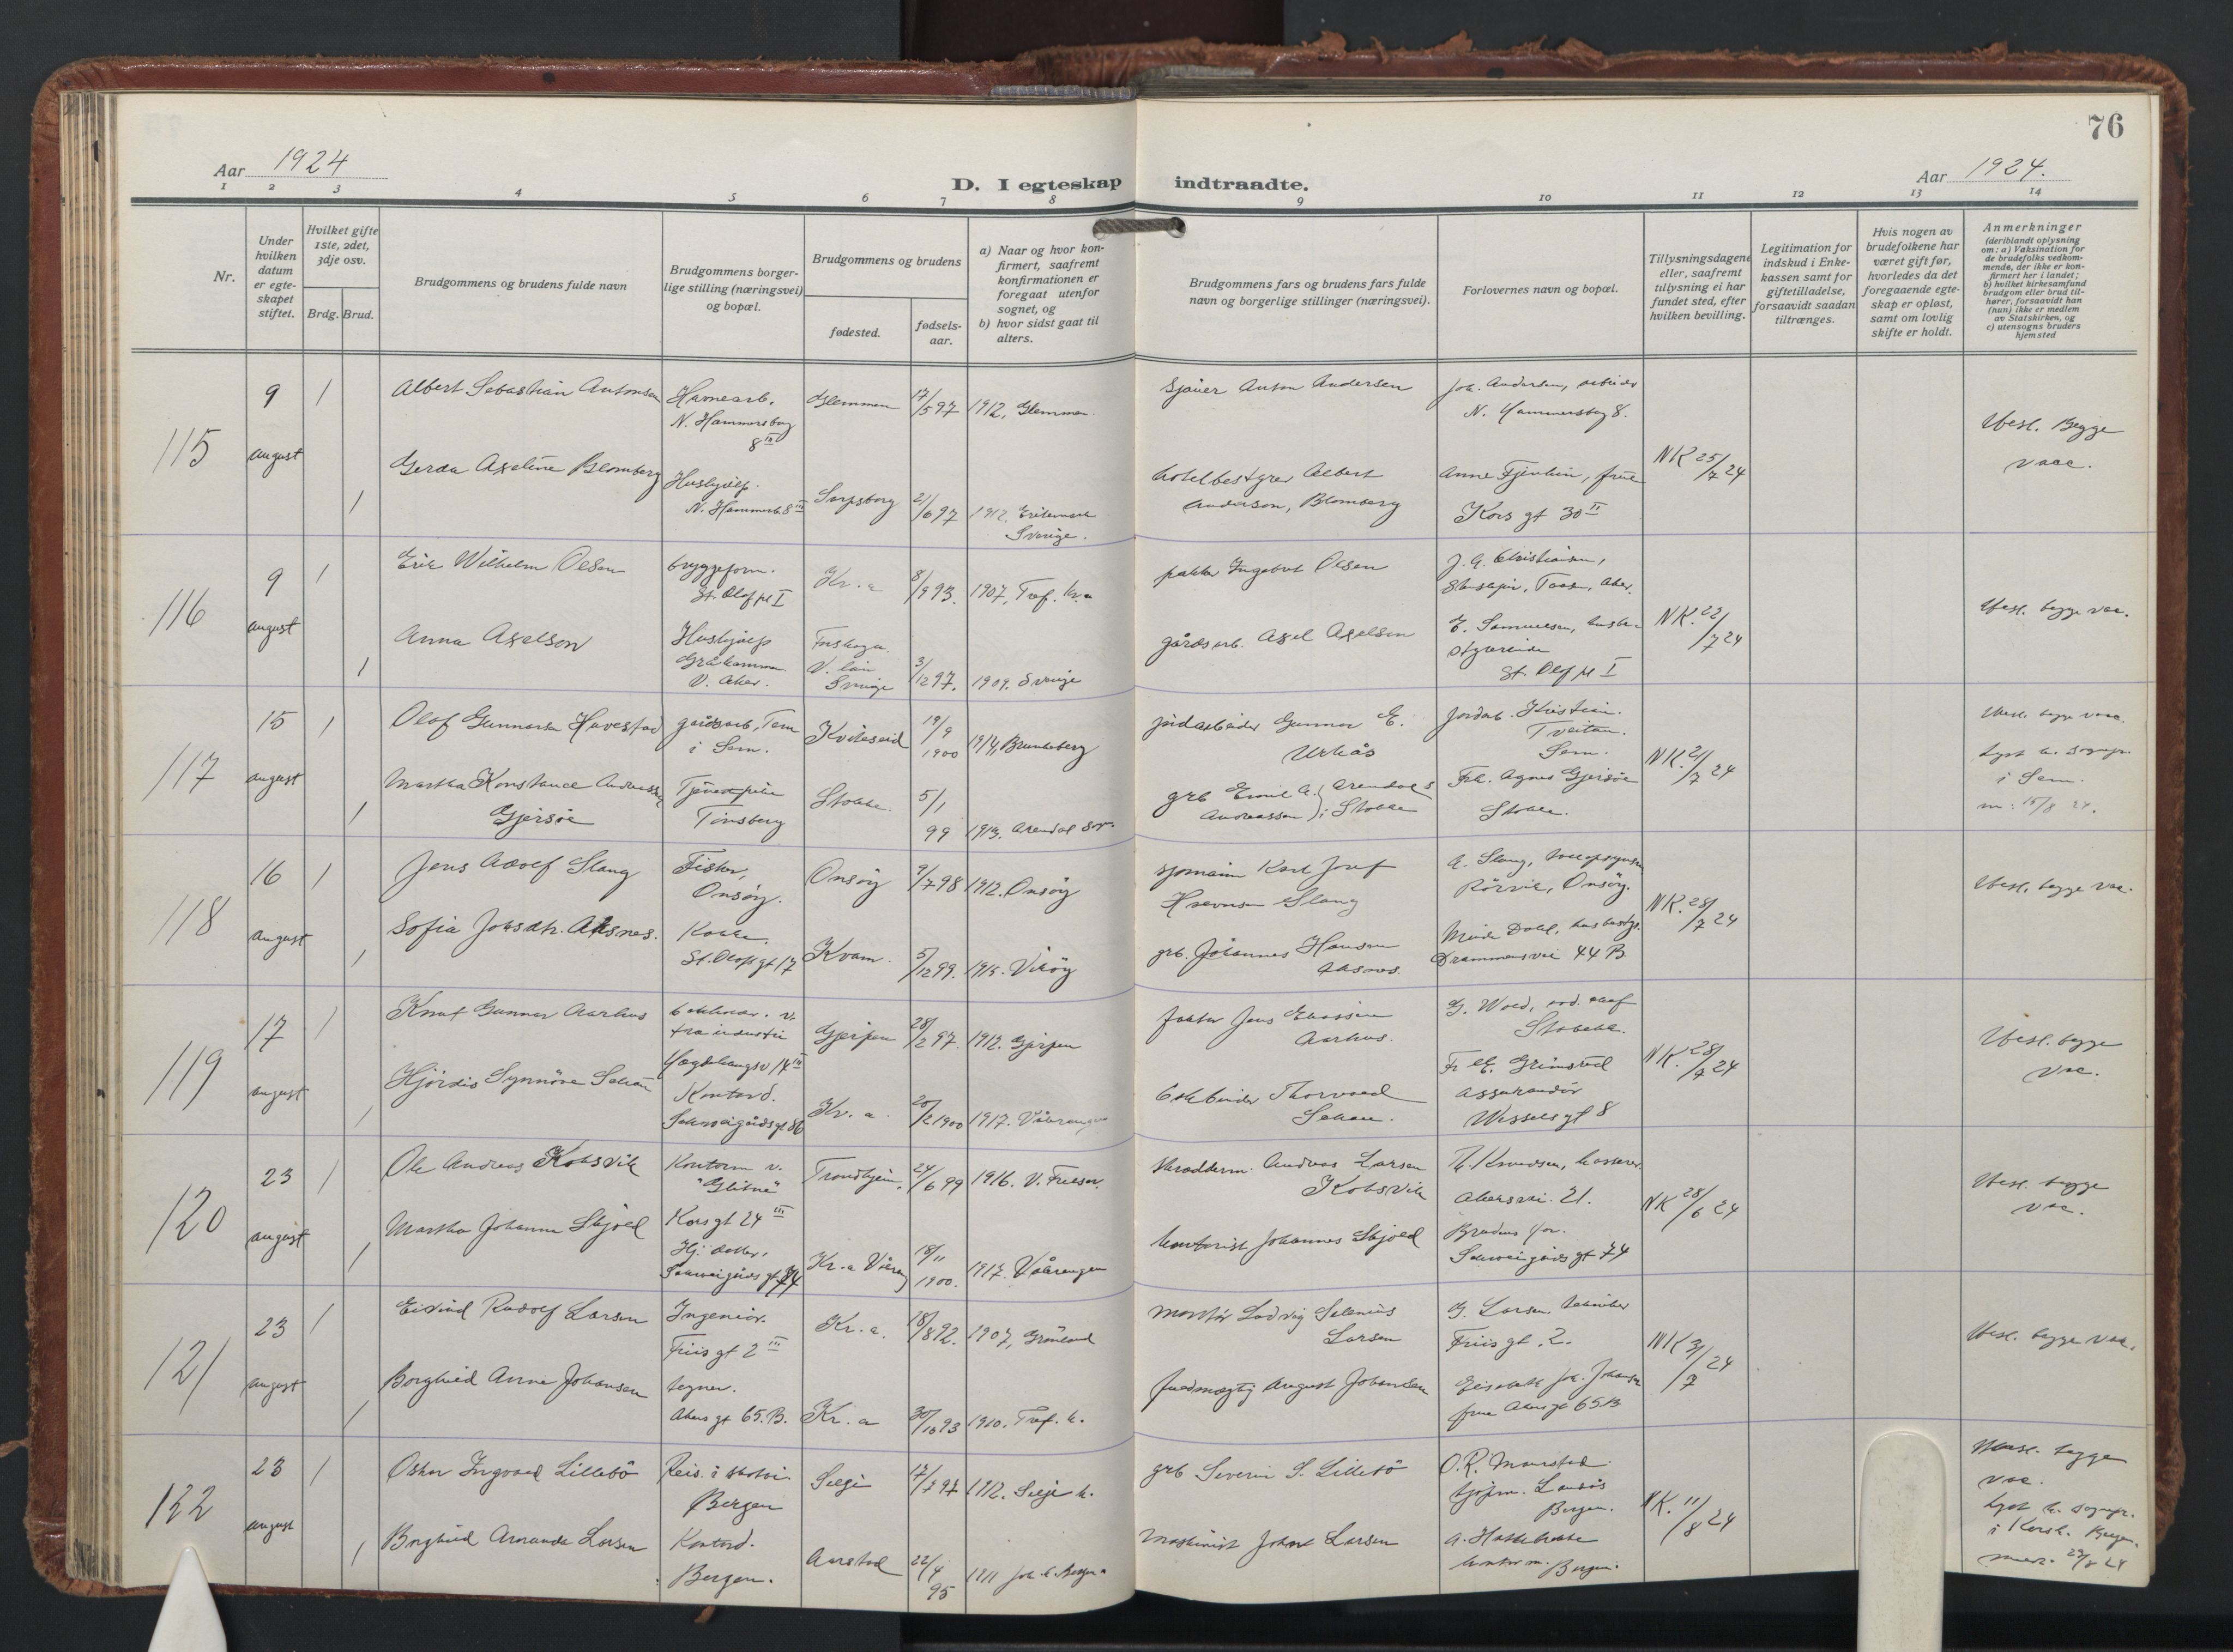 76
Aar 1924
D. I egteskap indtraadte.
Aar 1924.
1 2 3 4 5 6 7 8 9 10 11 12 13 14
Nr.
Under hvilken datum er egteskapet stiftet.
Hvilket gifte 1ste, 2det, 3dje osv.
Brdg. Brud.
Brudgommens og brudens fulde navn
Brudgommens borgerlige stilling (næringsvei) og bopæl.
Brudgommens og brudens
fødested.
fødsels-aar.
a) Naar og hvor konfirmert, saafremt konfirmationen er foregaat utenfor sognet, og
b) hvor sidst gaat til alters.
Brudgommens fars og brudens fars fulde navn og borgerlige stillinger (næringsvei).
Forlovernes navn og bopæl.
Tillysningsdagene eller, saafremt tillysning ei har fundet sted, efter hvilken bevilling.
Legitimation for indskud i Enkekassen samt for giftetilladelse, forsaavidt saadan tiltrænges.
Hvis nogen av brudefolkene har været gift før, hvorledes da det foregaaende egteskap er opløst, samt om lovlig skifte er holdt.
Anmerkninger
(deriblandt oplysning om: a) Vaksination for de brudefolks vedkommende, der ikke er konfirmert her i landet; b) hvilket kirkesamfund brudgom eller brud tilhører, forsaavidt han (hun) ikke er medlem av Statskirken, og c) utensogns bruders hjemsted
115
9 august
1
Albert Sebastian Antonsen
Havnearb.
N. Hammersborg 8 III
Glemmen
17/5 97
1912, Glemmen.
Sjauer Anton Andersen
Joh. Andersen, arbeider
N. Hammersborg 8.
NK 25/7 24
Ubesl. Begge vacc.
1
Gerda Axeline Blomberg
Hushjelp.
Sarpsborg
21/6 97
1912.
Sverige.
hotelbestyrer Albert
Anderson, Blomberg
Anne
frue
Kors gt 30 II
116
9 august
1
Erik Wilhelm Olsen
bryggeform.
St. Olafs pl I
Kr.a
8/9 93.
1907, Tref. k.
pakker Ingebret Olsen
J. G. Christiansen,
Taasen, Aker.
NK. 22/7 24
Ubesl. begge vac.
1
Anna Axelson
Hushjælp
V. Aker.
V. län
Sverige
3/12 97.
1909. Sverige
gårdsarb. Axel Axelson
E. Samuelsen,
St. Olafs pl I
117
15 august
1
Olaf Gunnarsen Havestad
gårdsarb, Tem
i Sem.
Kviteseid
19/9 1900
1914, Brunkeberg
jordarbeider Gunnar E.
Urkås
Jordarb. Kristian
Tveitan
Sem.
NK. 21/7 24
Ubesl. begge vac.
lyst k. sognepr.
i Sem.
15/8 24.
1
Martha Konstance Andreassen
Gjersøe
Tjenestepike
Tønsberg
Stokke.
5/1 99
1913. Arendal
grb Emil A. Andreassen
i Stokke
Frk. Agnes Gjersøe
Stokke.
118
16 august
1
Jens Adolf Slang
Fisker,
Onsøy.
Onsøy
9/7 98
1912. Onsøy
sjømann Karl Josef
Slang
A. Slang,
Rörvik, Onsøy.
NK. 28/7 24
Ubesl. begge vac.
1
Sofia Johsdtr. Aksnes.
Kokke.
St. Olafs gt 17
Kvam.
5/12 99.
1915. Vikøy
grb. Johannes Hansen
Aksnes.
Dahl,
Drammensvei 44 B
119
17 august
1
Knut Gunnar Aarhus
træindustri
Gjerpen
28/2 97.
1912. Gjerpen
faktor Jens Eliassen
Aarhus.
G. Wold,
Stabekk.
NK. 28/7 24
Ubesl. begge vac.
1
Hjördis Synnöve Schau
Kontord.
Schweigårdsgt 86
Kr. a.
20/2 1900
1917. Vålerengen
bokbinder Thorvald
Schau.
Grimstad
assurandör
Wesselsgt 8
120
23 august
1
Ole Andreas Kobsvik
Kontorm v.
"Glitne"
Korsgt 24 III
Trondhjem.
24/6 99
1916. V. Frelser.
Skreddderm. Andreas Larsen
Kobsvik
Th. Knudsen, kasserer
Akersvei. 21.
NK 28/6 24
Ubesl. begge vac.
1
Martha Johanne Skjold
Hj. datter,
Schweigårds gt 74
Kr. a Våleng
18/11 1900.
1917. Vålerengen
kontorist Johannes Skjold
Brudens far.
Schweigårds gt 74
121
23 august
1
Eivind Rudolf Larsen
Ingeniør.
Friis gt 2 III
Kr. a.
18/8 92.
1907, Grønland
Montør Ludvig Selenius
Larsen
G. Larsen, tekniker
Friis gt. 2.
NK 3/7 24
Ubesl. begge vac.
1
Borghild Anna Johansen
tegner.
Akers gt 65. B.
Kr. a
30/10 93
1910. Tref. k.
fuldmægtig August Johansen
Elisabeth
frue Akersgt 65 B
122
23 august
1
Oskar Ingvald Lillebö
Bergen
Selje
17/7 97
1912. Selje k.
grb Severin S. Lillebö
O. R. Maurstad.
Bergen.
NK. 11/8 24
Ubesl. begge vac.
lyst k. sognepr.
i Korsk. Bergen.
23/8 24
1
Borghild Amanda Larsen
Kontord.
Bergen.
Aarstad
22/4 95
1911 Joh. k. Bergen
Maskinist Johan Larsen
kontorm. Bergen.